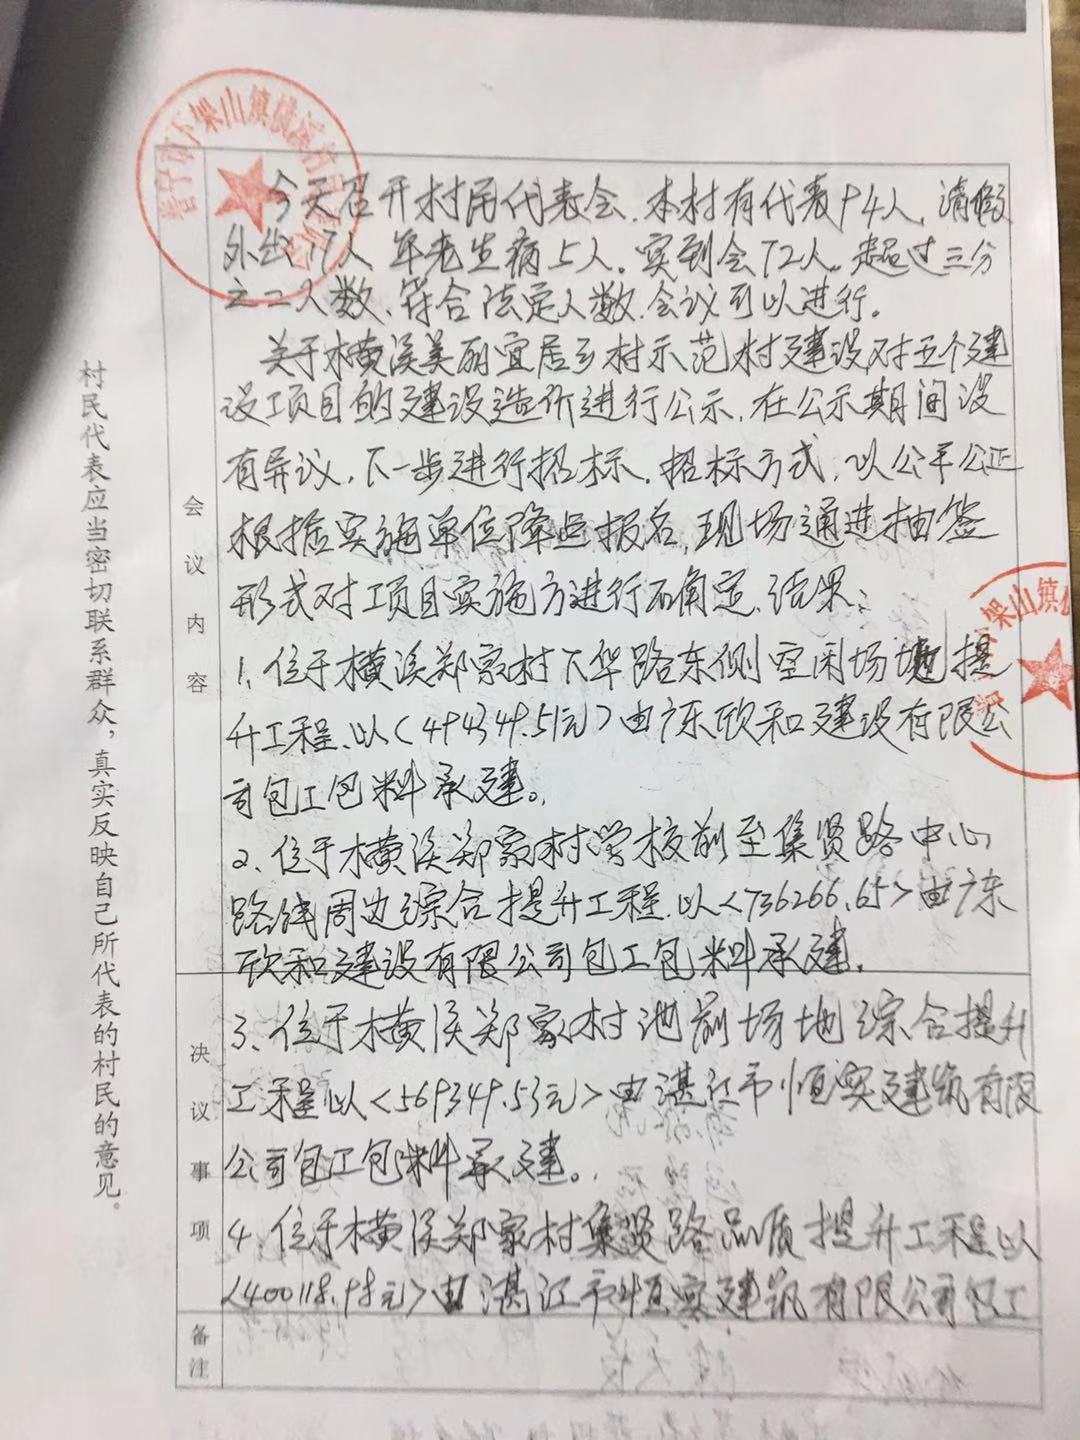 普宁市下架山镇横溪村
今天召开村民代表会.本村有代表94人,请假
外出17人 年老生病5人。实到会72人。超过三分
之二人数、符合法定人数.会议可以进行。
关于横溪美丽宜居乡村示范村建设对五个建
设项目的建设造价进行公示.在公示期间没
有异议,下一步进行招标.招标方式,以公平公正
根据实施单位降点报名,现场通进抽签
形式对项目实施方进行确定.结果:
1、位于横溪郑家村下华路东侧空闲场地提
升工程、以<494349.51元>由广东欣和建设有限公
司包工包料承建。
2、位于横溪郑家村学校前至集贤路中心
路线周边综合提升工程.以<736266.65>由广东
欣和建设有限公司包工包料承建.
3、位于横溪郑家村池前场地综合提升
工程以<569349.53元>由湛江市恒实建筑有限
公司包工包料承建。
4、位于横溪郑家村集贤路品质提升工程以
<400118.98元>由湛江市恒实建筑有限公司包工
会议内容
决议事项
备注
村民代表应当密切联系群众,真实反映自己所代表的村民的意见。
架山镇